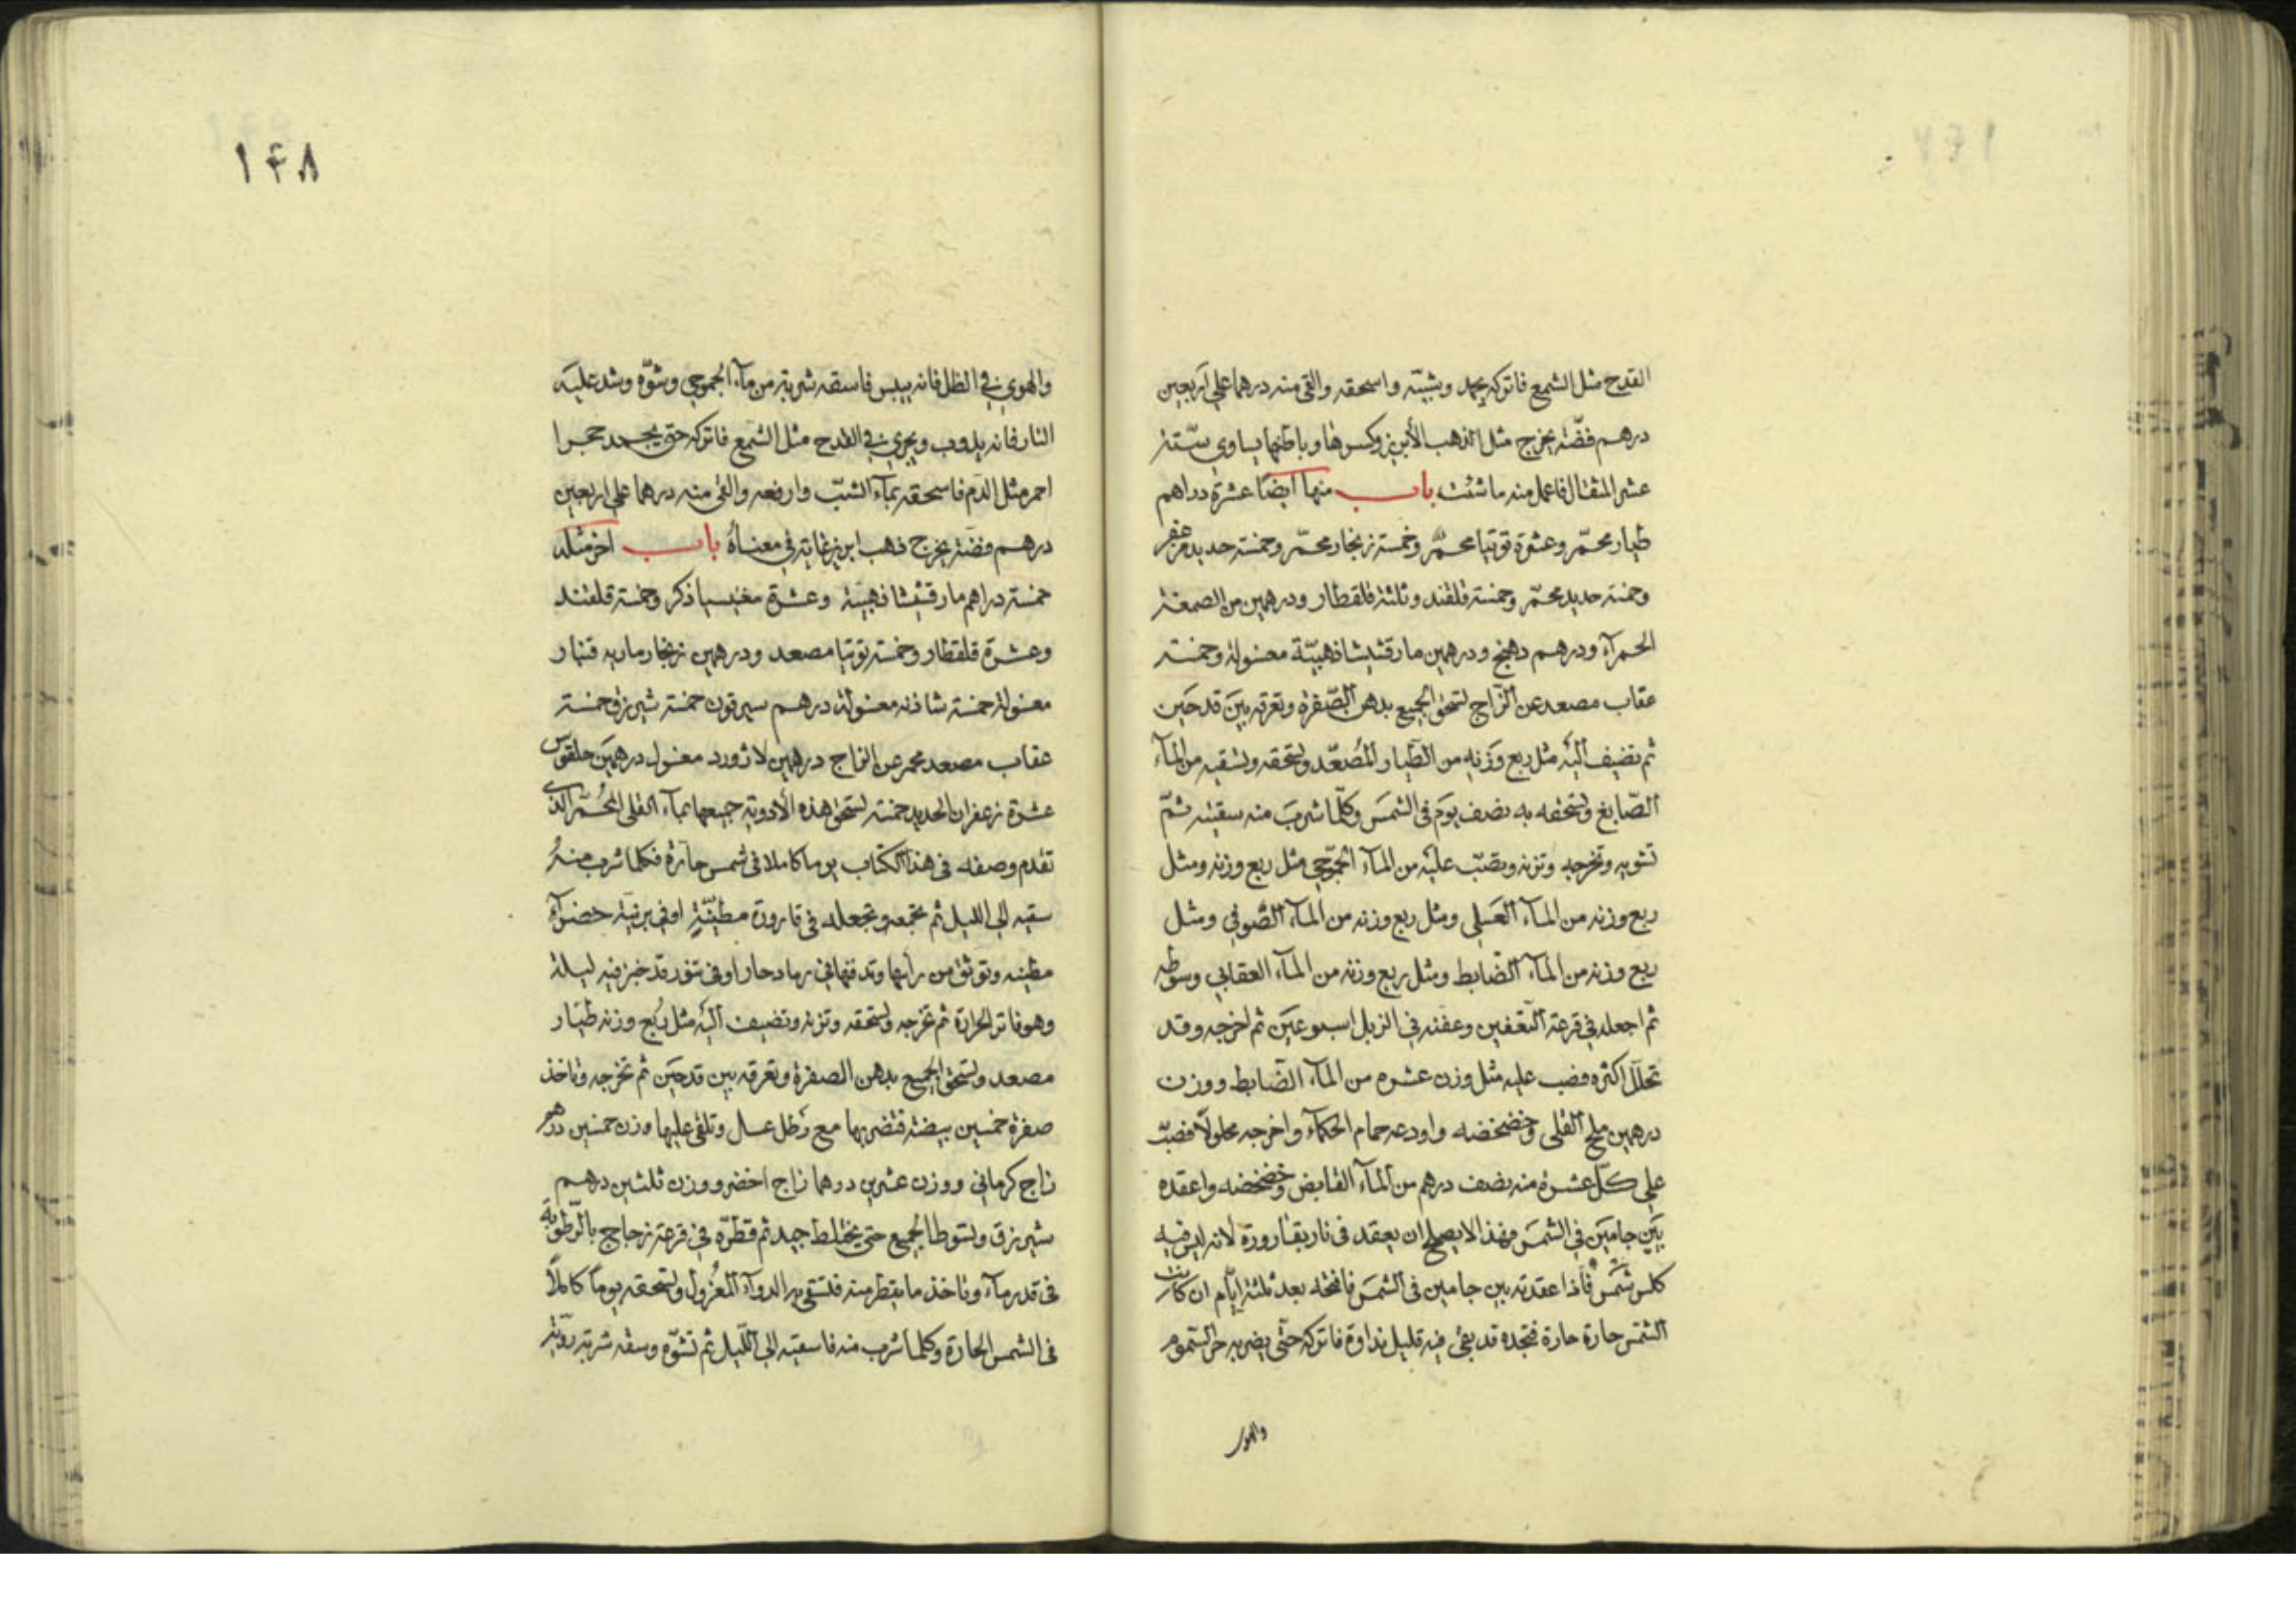 القدح مثل الشمع فاتركه يجمد وبيّته واسحقه والق منه درهما على اربعين
درهم فضّة يخرج مثل الذهب الأبريز وكسرها وباطنها يساوي ستّة
عشر المثقال فاعمل منه ما شئت باب منها ايضا عشرة دراهم
طيار محمّر وعشرة توتيا محمّر وخمسة زنجار محمّر وخمسة حديد مزعفر
وخمسة حديد محمّر وخمسة قلقند وثلثة قلقطار ودرهمين من الصمغة
الحمرآء ودرهم دهنج ودرهمين مارقشيشا ذهبيّة مغسولة وخمسة
عقاب مصعد عن الزّاج لتسحق الجميع بدهن الصّفرة وتغرقه بين قدحَين
ثم تضيف اليه مثل ربع وَزنه من الطّيار المُصعّد وتسحقه وتسقيه من المآء
الصّابغ وتسحقه به نصف يوَم فى الشمسَ وكلّما شربَ منه سقيته ثمّ
تشويه وتخرجه وتزنه وتصبّ عليه من المآء الجمّوجي مثل ربع وزنه ومثل
ربع وزنه من المآء العَسلى ومثل ربع وزنه من المآء الصّوفي ومثل
ربع وزنه من المآء الضّابط ومثل ربع وزنه من المآء العقابي وسوطه
ثم اجعله في قرعة التعفين وعفنه في الزبل اسبوعَين ثم اخرجه وقد
تحلّل اكثره فصب عليه مثل وزن عشره من المآء الضّابط ووزن
درهمين ملح القلى وخضخضه واودعه حمام الحكمآء واخرجه محلولًا فصبّ
على كلّ عشرة منه نصف درهم من المآء القابض وخضخضه واعقده
بَين جامَين في الشمسَ فهذا لا يصلح ان يعقد فى نار بقارورة لانه ليس فيه
كلس شمس فاذا عقدته بين جامين فى الشمسَ فافتحه بعد ثلثة ايّام ان كانت
الشمس حارة حارة فتجده قد بقى فيه قليل نداوة فاتركه حتّى يضربه حر السّموم
والهوى
١٤٨
والهوى في الظل فانه ييبس فاسقه شربة من مآء الجموجي وشوّه وشد عليه
النار فانه يذوب ويجري في القدح مثل الشمع فاتركه حتى يجمد حجرا
احمر مثل الدّم فاسحقه بمآء الشبّ وارفعه والق منه درهما على اربعين
درهم فضّة يخرج ذهب ابريز غاية في معناهُ باب اخر مثله
خمسة دراهم مارقشيشا ذهبيّة وعشرة مغنيسيا ذكر وخمسة قلقند
وعشرة قلقطار وخمسة توتيا مصعد ودرهمين زنجار ماريه قنبار
مغسولة خمسة شاذنه مغسولة درهم سيرقون خمسة شيرزق خمسة
عقاب مصعد محمر عن الزاج درهمين لازورد مغسول درهمَين حلقوس
عشرة زعفران الحديد خمسة لتسحق هذه الأدوية جميعها بمآء القلى المُحمّر الذى
تقدم وصفه فى هذا الكتاب يوما كاملا فى شمس حآرة فكلما شرب منهُ
سقيه الى الليل ثم تجمعه وتجعله فى قارورة مطيّنةٍ او في برنية خضرآء
مطينه وتوثق من رأسها وتدفنها في رماد حار او في تنور قد خبز فيه ليلة
وهو فاتر الحرارة ثم تخرجه وتسحقه وتزنه وتضيف اليه مثل رُبع وزنه طيّار
مصعد وتسحق الجميع بدهن الصفرة وتغرقه بين قدحَين ثم تخرجه وتاخذ
صفرة خمسين بيضة فتضربها مع رَطل عسل وتلقى عليها وزن خمسين درهم
زاج كرمانى ووزن عشرين درهما زاج اخضر ووزن ثلثين درهم
شيرزق وتسوط الجميع حتى يختلط جيد ثم قطرّه في قرعة زجاج بالرّطوبة
فى قدر مآء وتاخذ ما يقطر منه فتسقى به الدوآء المعزول وتسحقه يوماً كاملاً
فى الشمس الحارة وكلما شرب منه فاسقيه الى اللّيل ثم تشوّه وسقه شربة رويّة